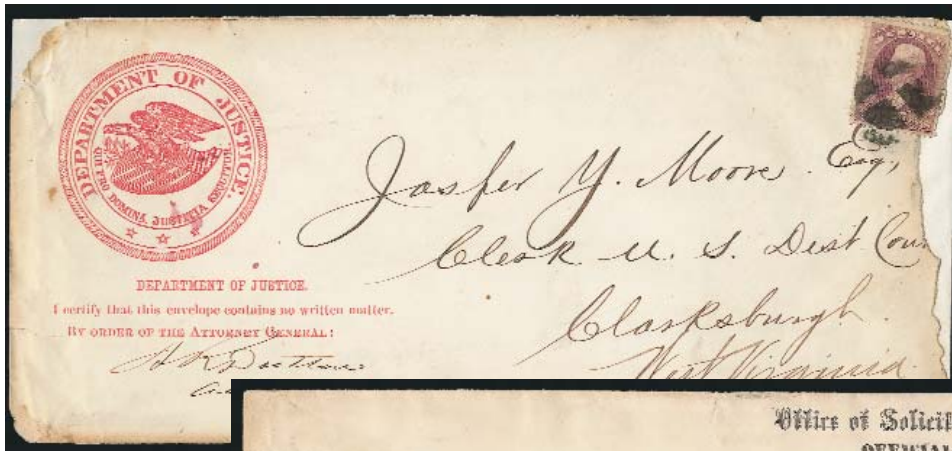 DEPARTMENT OF JUSTICE.
QUI PRO DOMINA JUSTITIA SEQUITUR
DEPARTMENT OF JUSTICE.
I certify that this envelope contains no written matter.
BY ORDER OF THE ATTORNEY GENERAL:
Jasper Y. Moore Esq,
Clerk U. S. Dist Cour
Clarksburgh.
West Virginia.
Office of Solicit
OFFICIAL